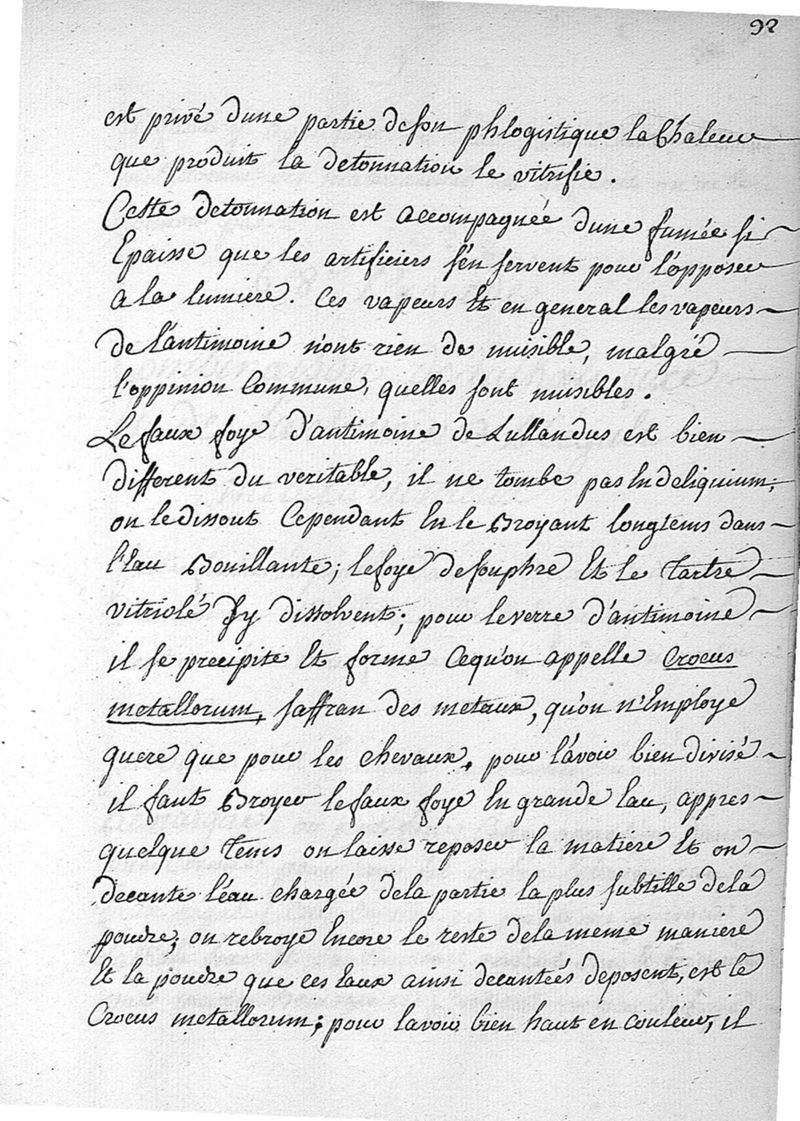 92
est privé dune partie de son phlogistique la Chaleur
que produit la detonnation le vitrifie.
Cette detonnation est accompagnée dune fumée si
Epaisse que les artificiers s'en servent pour l'opposer
a la lumiere. Ces vapeurs Et en general les vapeurs
de l'antimoine n'ont rien de nuisible, malgré
l'oppinion Commune, quelles sont nuisibles.
Le faux foye d'antimoine de Lullandus est bien
different du veritable, il ne tombe pas En deliquium,
on le dissout Cependant En le Broyant longtems dans
l'Eau Bouillante; le foye de souphre Et le Tartre
vitriolé Sy dissolvent; pour le verre d'antimoine
il se precipite Et forme Cequ'on appelle Crocus
metallorum, saffran des metaux, qu'on n'Employe
quere que pour les chevaux, pour l'avoir bien divisé
il faut Broyer le faux foye En grande Eau, appres
quelque Tems on laisse reposer la matiere Et on
decante l'eau chargée dela partie la plus subtille dela
poudre, on rebroye Encore le reste dela meme maniere
Et la poudre que ces Eaux ainsi decantées deposent, est le
Crocus metallorum; pour lavoir bien haut en couleur, il